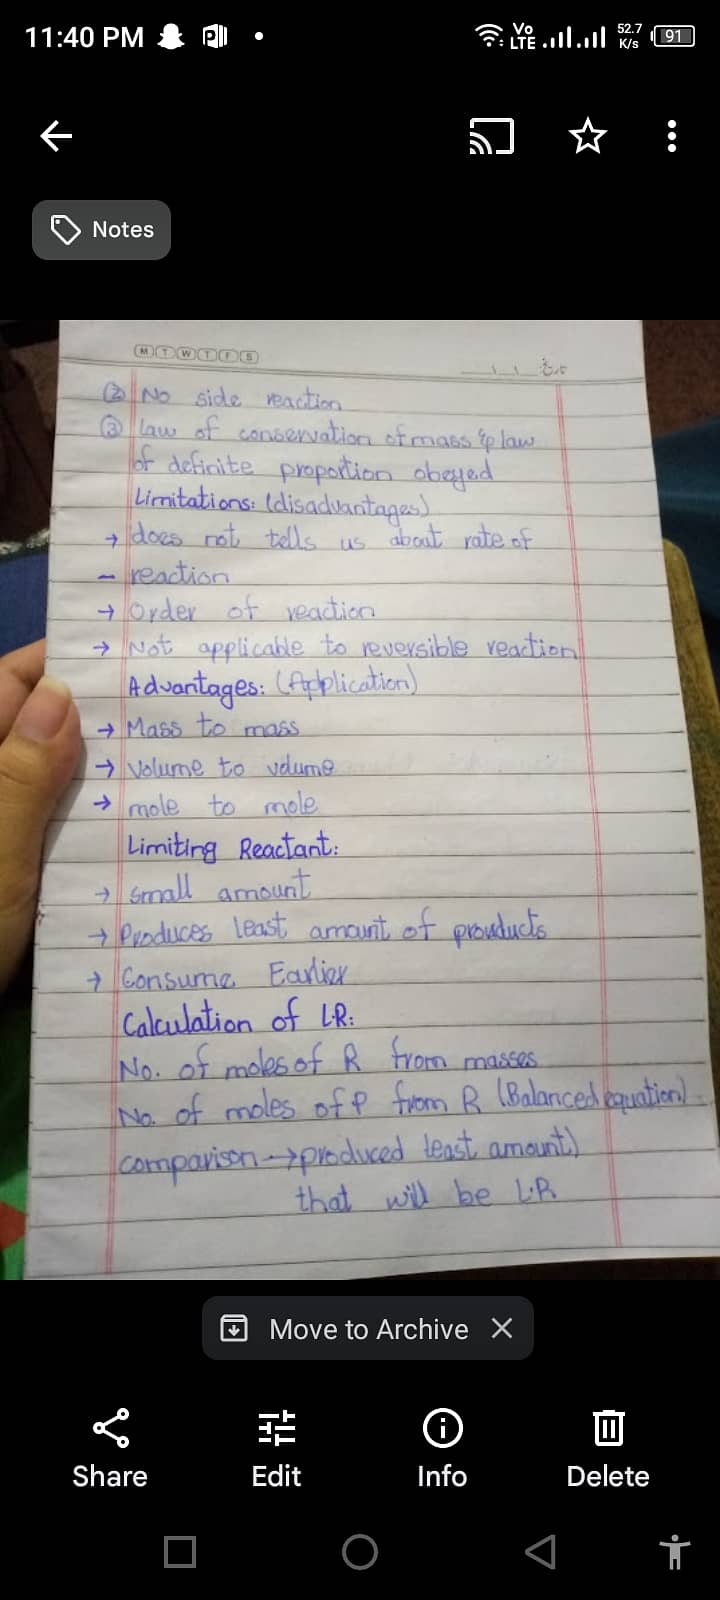 11:40 PM
Vo LTE 52.7 K/s 91
Notes
M T W T F S
② No side reaction
③ law of conservation of mass & law
of definite proportion obeyed
Limitations: (disadvantages)
→ does not tells us about rate of
– reaction
→ Order of reaction
→ Not applicable to reversible reaction
Advantages: (Application)
→ Mass to mass
→ Volume to volume
→ mole to mole
Limiting Reactant:
→ small amount
→ Produces least amount of prouducts
→ Consume Earlier
Calculation of L.R:
No. of moles of R from masses
No. of moles of P from R (Balanced equation)
comparison → produced least amount)
that will be L.R
Move to Archive
Share Edit Info Delete